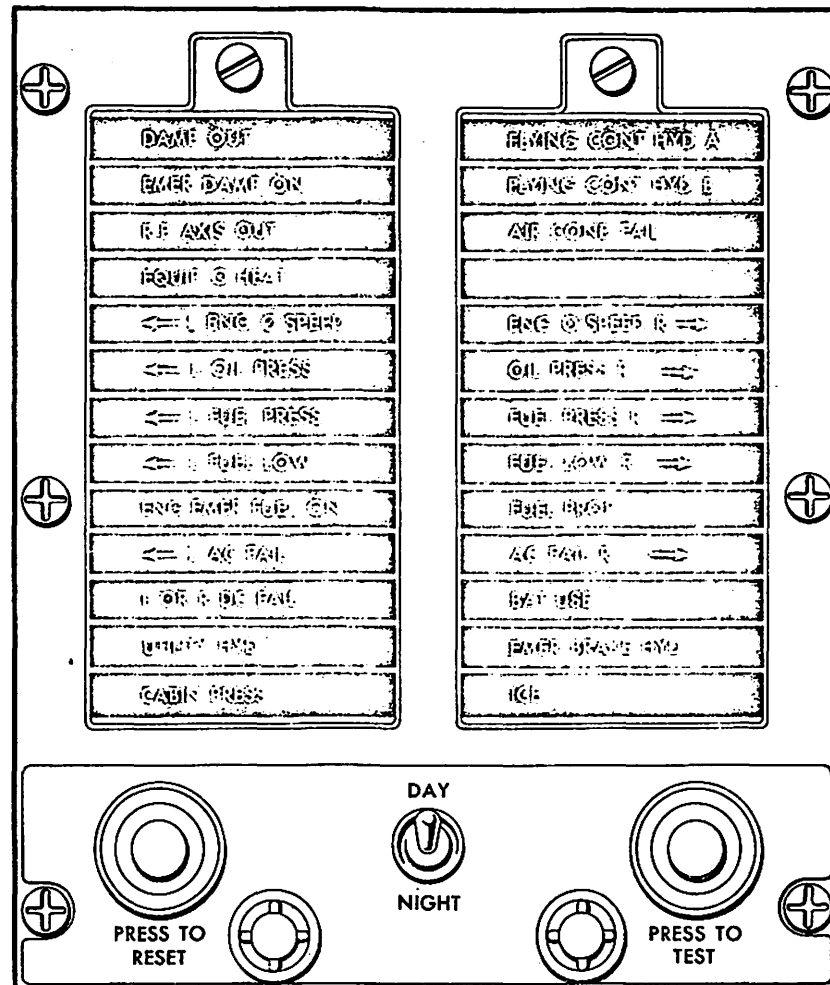 DAMP OUT
EMER DAMP ON
R.P. AXIS OUT
EQUIP O HEAT
⇐ L ENG O SPEED
⇐ L OIL PRESS
⇐ L FUEL PRESS
⇐ L FUEL LOW
ENG EMER FUEL ON
⇐ L AC FAIL
L OR R DC FAIL
UTILITY HYD
CABIN PRESS
FLYING CONT HYD A
FLYING CONT HYD B
AIR COND FAIL
ENG O'SPEED R ⇒
OIL PRESS R ⇒
FUEL PRESS R ⇒
FUEL LOW R ⇒
FUEL PROP
AC FAIL R ⇒
BAT USE
EMER BRAKE HYD
ICE
DAY
NIGHT
PRESS TO
RESET
PRESS TO
TEST